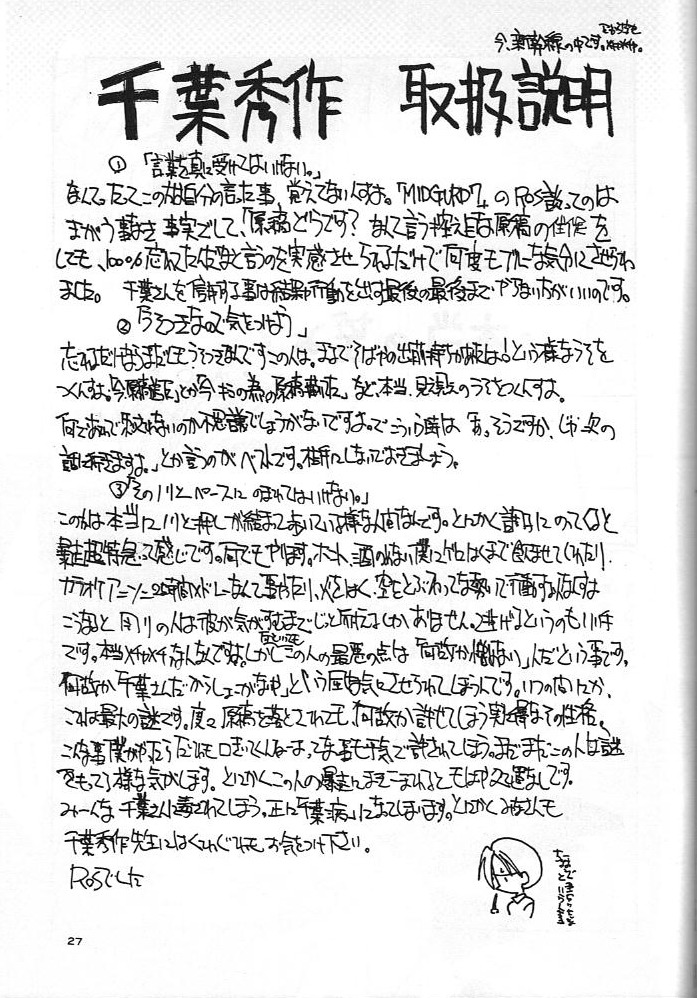 今、新幹線の中です。
千葉秀作 取扱説明
① 「言葉を真に受けてはいけない。」
なんて。だってこの方は自分の言った事、覚えてないんすよ。「MIDGURD」の
まがう事なき事実でして、「原稿どうです?」なんて言う控え目な原稿の催促を
しても、100%忘れてたなと言うのを実感させられるだけで何度もブルーな気分にさせられ
ました。 千葉さんを信用する事は結果や行動を出す最後の最後までやらない方がいいのです。
② 「うそつきなので気をつけよう」
忘れるだけならまだしもうそつきなんですこの人は。まるでそばやの出前持ちが如く という様なうそを
つくんすよ。「今、原稿進行」とか「今 の為の原稿 」など、本当、見え見えのうそをつくんすよ。
何であんで のか不思議でしょうがないですよ。でこういう時は「あ。そうですか、じゃ次の
話に行きますよ。」とか言うのがベストです。相手にしないでおきましょう。
③ 「そのノリとペースにのまれてはいけない。」
この人は本当にノリと押しが絡まって歩いている様な人間なんです。とにかく調子にのってくると
暴走超特急って感じです。何でもやります。ホント、酒のめない僕にゲロはくまで飲ませてくれたり、
カラオケアニソン2時間メドレーなんて事やったり、
こうなると周りの人は彼が気がすむまでじっと耐えるしかありません。逃げるというのも1つの手
です。本当メチャメチャなんですよ。しかしこの人の最悪の点は「何故か憎めない」人だという事です。
何故か「千葉さんだからしょーがないや」という気にさせられてしまうんです。いつの間にか、
これは最大の謎です。度々原稿を落とされても、何故か許せてしまう実に得なその性格。
こんな事僕がやったらだれも口きいてくんねーよってな事も平気で許されてしまう。まだまだこの人は謎
をもってる様な気がします。とにかくこの人の暴走にまきこまれるともはや処置なしです。
みーんな千葉さんに毒されてしまう。正に「千葉病」になってしまいます。とにかくみなさんも
千葉秀作先生にはくれぐれも、お気をつけ下さい。
Rosでした
27